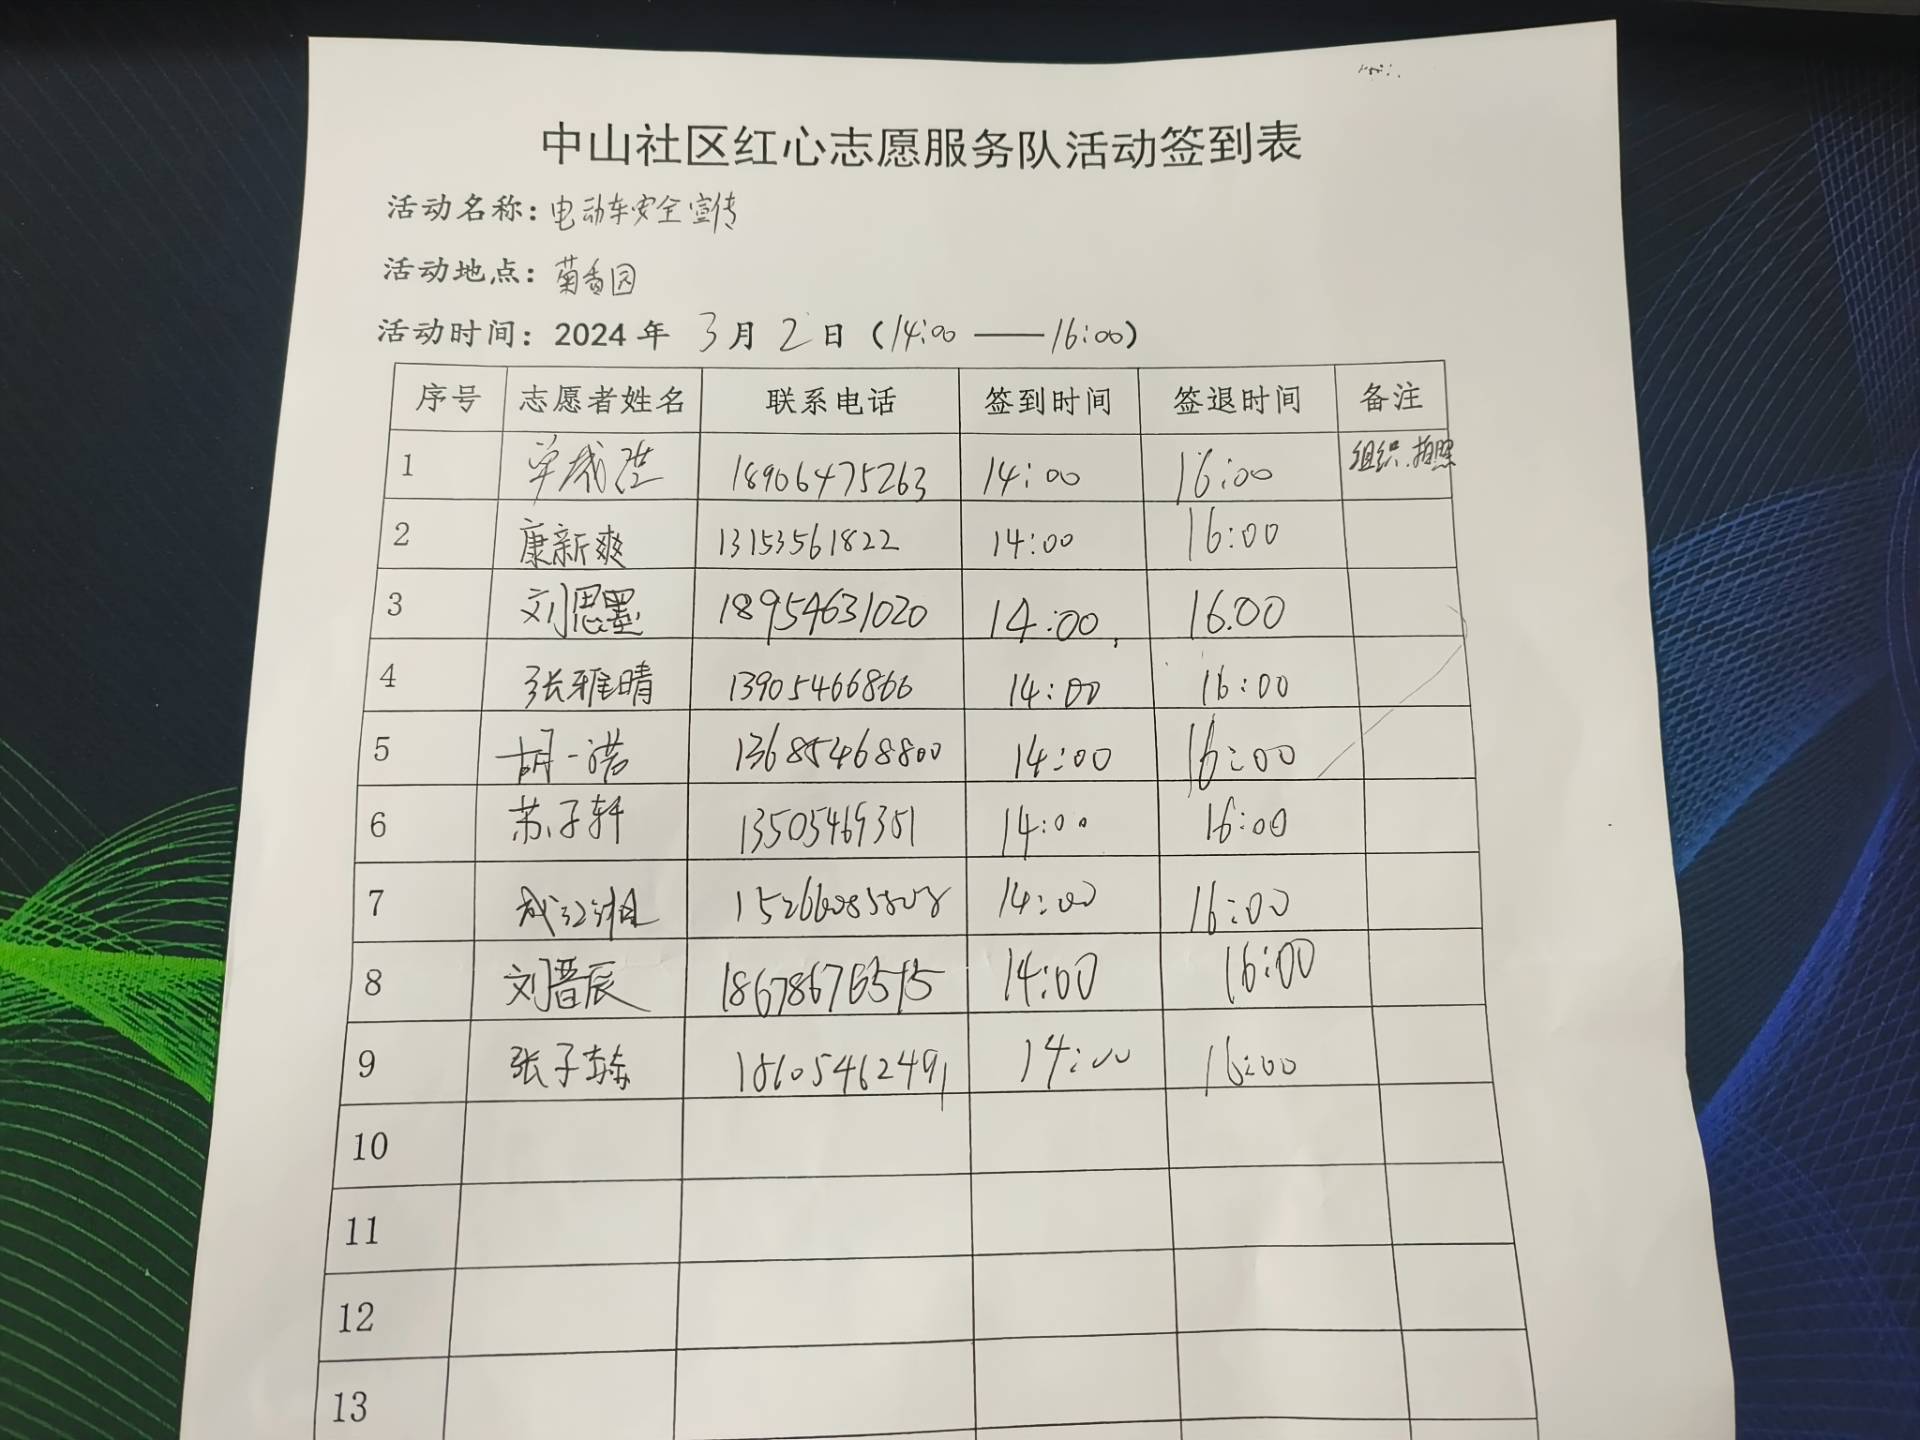 中山社区红心志愿服务队活动签到表
活动名称：电动车安全宣传
活动地点：菊香园
活动时间：2024 年 3 月 2 日（14:00 —— 16:00）
序号 志愿者姓名 联系电话 签到时间 签退时间 备注
1 18906475263 14:00 16:00 组织.拍照
2 康新爽 13153561822 14:00 16:00
3 刘思墨 18954631020 14:00 16.00
4 张雅晴 13905466866 14:00 16:00
5 胡一诺 13685468800 14:00 16:00
6 苏子轩 13505469351 14:00 16:00
7 14:00 16:00
8 刘晋辰 14:00 16:00
9 张子栋 18605462491 14:00 16:00
10
11
12
13